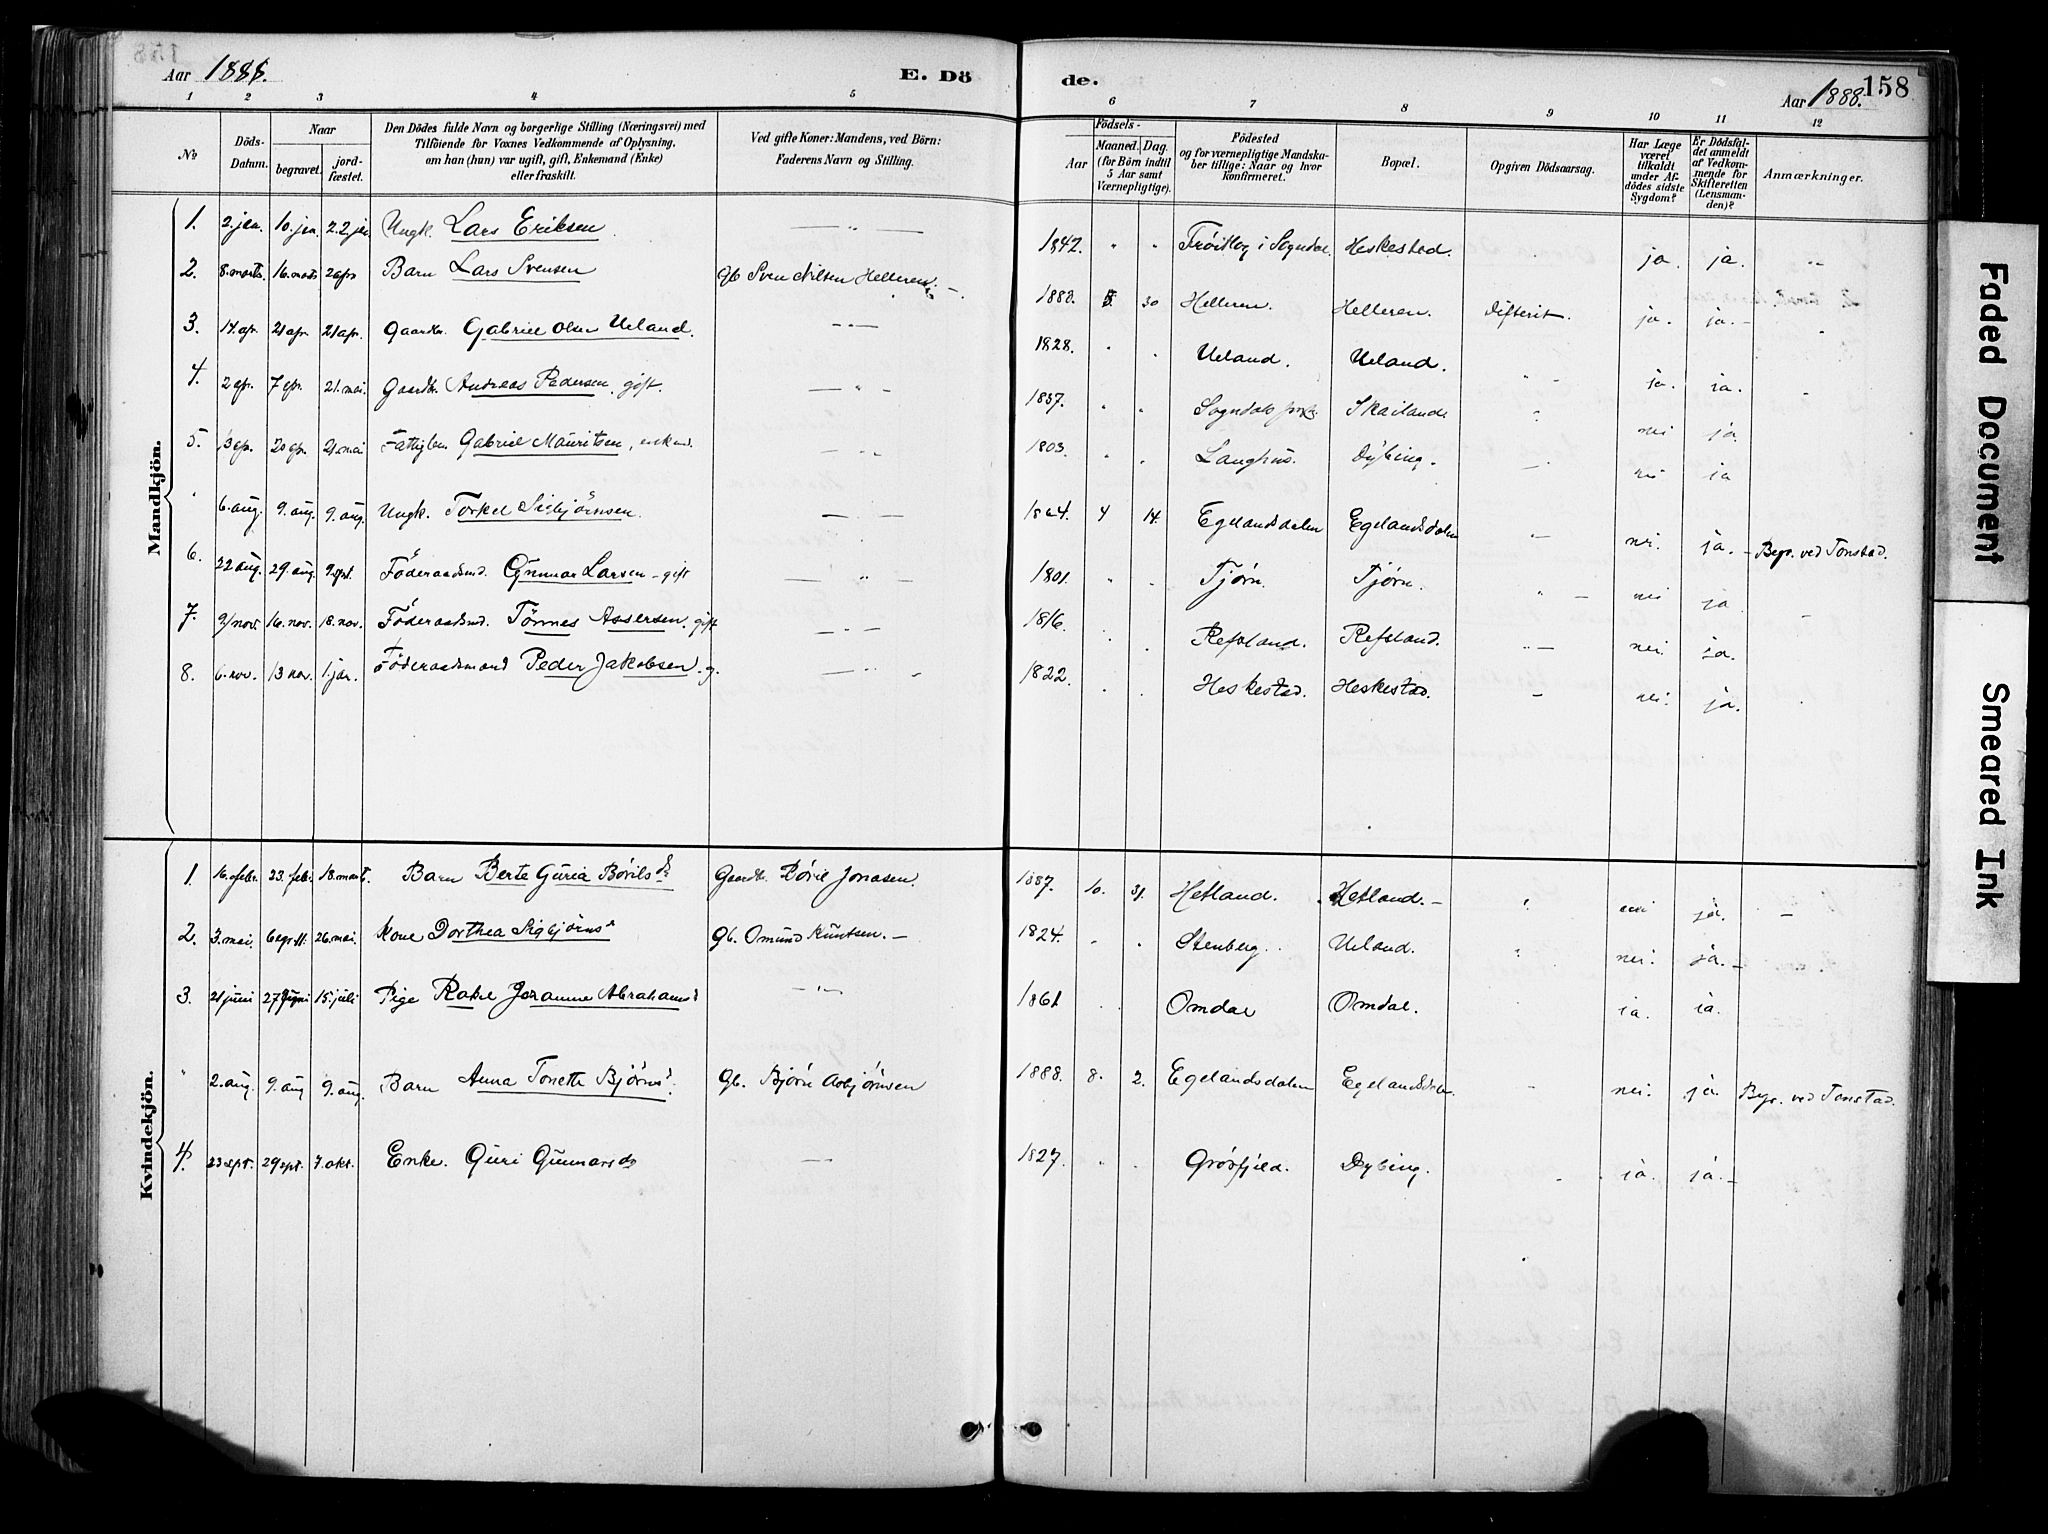 Aar 1888. E. Dö de. Aar 1888. 158
1 2 3 4 5 6 7 8 9 10 11 12
No Döds-Datum. Naar begravet. jord-fæstet. Den Dödes fulde Navn og borgerlige Stilling (Næringsvei) med Tilföiende for Voxnes Vedkommende af Oplysning, om han (hun) var ugift, gift, Enkemand (Enke) eller fraskilt. Ved gifte Koner: Mandens, ved Börn: Faderens Navn og Stilling. Födsels- Aar Maaned. Dag. (for Börn indtil 5 Aar samt Værnepligtige). Födested og for værnepligtige Mandskaber tillige: Naar og hvor konfirmeret. Bopæl. Opgiven Dödsaarsag. Har Læge været tilkaldt under Afdödes sidste Sygdom? Er Dödsfaldet anmeldt af Vedkommende for Skifteretten (Lensmanden)? Anmærkninger.
Mandkjön.
1. 2. jan. 10. jan. 22 jan. Ungk. Lars Eriksen — „ — 1842 „ „ i Sogndal Heskestad. ja. ja. „
2. 8. marts. 16. marts 2 apr Barn Lars Svensen gb Sven Nilsen Helleren. — 1888. 30 Helleren. Helleren. Difterit. ja. ja. —
3. 14. apr 21 apr 21 apr. Gaardbr. Gabriel Olsen Ueland. — „ — 1828. „ „ Ueland. Ueland. „ — ja. ja. „
4. 2 apr. 7 apr. 21. mai. Gaardbr. Andreas Pedersen, gift. — „ — 1837. „ „ Sogndals Skailand nei ja.
5. 13 apr. 20 apr. 21. mai Fattiglem Gabriel Mauritsen, enkem. — „ — 1803. „ „ Langhus. Dybing. — nei ja
„ 6. aug. 9. aug. 9. aug. Ungk. Torkel Sigbjörnsen. — „ — 1864. 4 14. Egelandsdalen Egelandsdalen — nei. ja. — Begr. ved Tonstad.
6. 22 aug. 29. aug. 9. spt. Föderaadsmd. Gunnar Larsen - gift — „ — 1801. „ „ Tjørn. Tjørn. „ — nei ja
7. 9/nov. 16. nov. 18. nov. Föderaadsmd. Tönnes Assersen. gift — „ — 1816. „ „ Refsland. Refsland. „ — nei. ja. —
8. 6. nov. 13 nov. 1. jan. Föderaadsmand Peder Jakobsen. g. — „ — 1822. „ „ Heskestad. Heskestad. — nei. ja.
Kvindekjön.
1. 16. febr. 23. febr. 18. marts. Barn Berte Guria Børilsdr Gaardbr. Børil Jonasen. 1887. 10. 31. Hetland. Hetland. — „ nei ja. —
2. 3. mai. 26. mai. Kone Dorthea Sigbjørnsd gb. Omund Knutsen. — 1824. „ „ Stenberg. Ueland. „ nei. ja. —
3. 21 juni 27 juni 15. juli Pige Rakel Johanne Abrahamsd — „ — 1861 „ „ Omdal Omdal. ja. ja.
„ 2. aug. 9. aug 9. aug. Barn Anna Tonette Bjørnsd. gb. Bjørn Asbjørnsen 1888. 8. 2. Egelandsdalen Egelandsdalen. nei. ja. Begr. ved Tonstad.
4. 23 sept. 29 spt. 7. okt. Enke. Guri Gunnarsdr — 1827. „ „ Grøsfjeld. Dybing. ja. ja. —
Faded Document
Smeared Ink